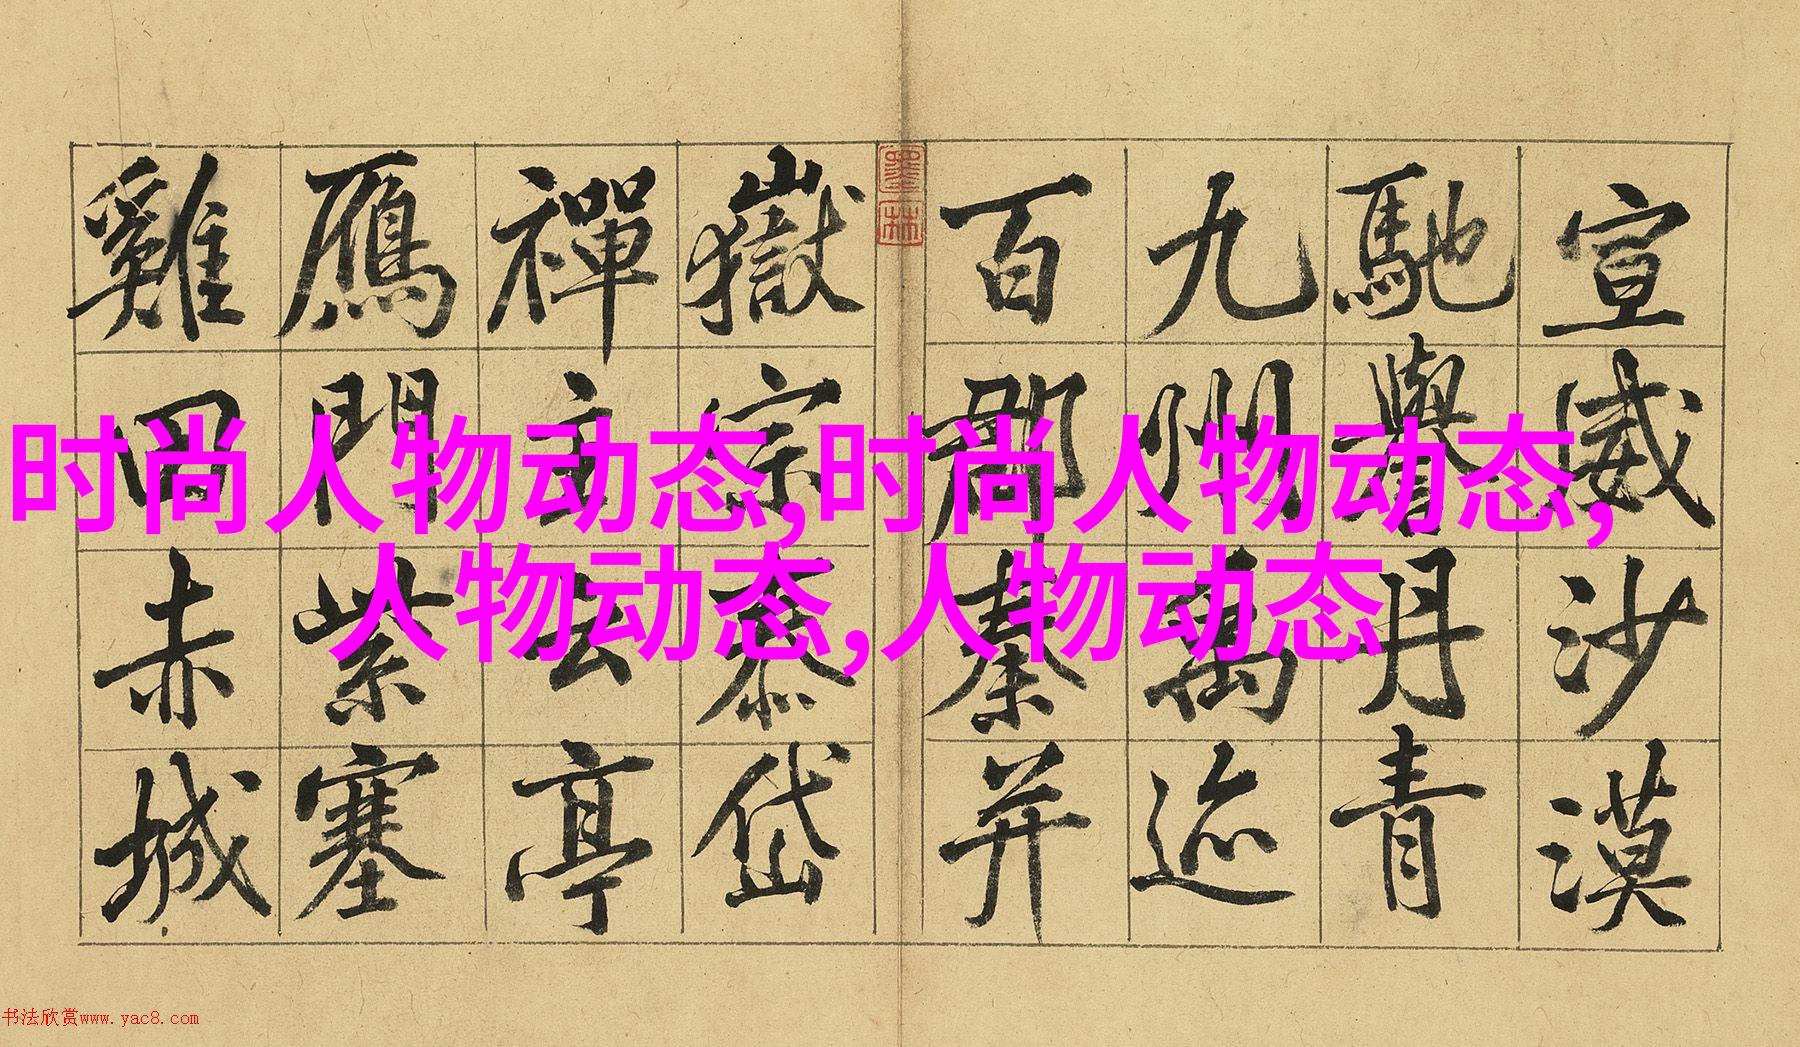 时尚人物动态,时尚人物动态,
人物动态,人物动态
宣威沙漠
馳譽丹青
九州禹迹
百郡秦并
墨林
嶽宗泰岱
禪主云亭
鴈門紫塞
雞田赤城
书法欣赏www.yac8.com